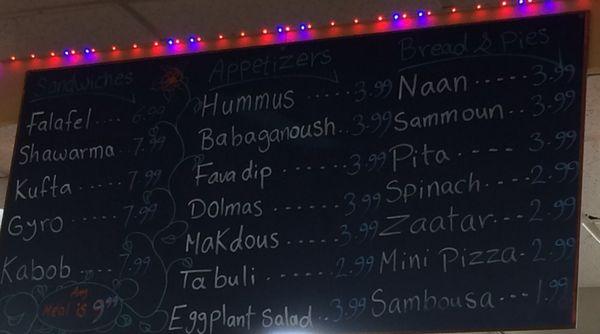 Sandwiches
Falafel.... 6.99
Shawarma.. 7.99
Kufta ..... 7.99
Gyro ..... 7.99
Kabob .... 7.99
Any
Meal is 9.99
Appetizers
Hummus ..... 3.99
Babaganoush.. 3.99
Fava dip ..... 3.99
Dolmas ...... 3.99
Makdous ...... 3.99
Tabuli ...... 2.99
Eggplant Salad.. 3.99
Bread & Pies
Naan ----- 3.99
Sammoun--- 3.99
Pita ---- 3.99
Spinach--- 2.99
Zaatar--- 2.99
Mini Pizza- 2.99
Sambousa--- 1.99